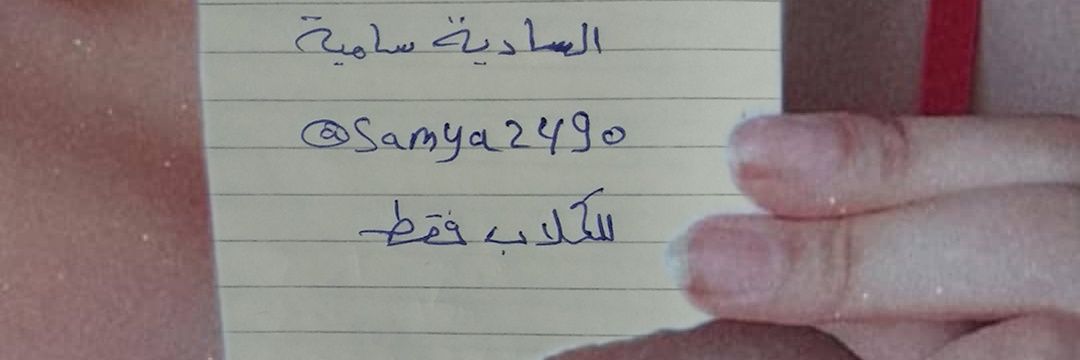 السادية سامية
@Samya2490
للكلاب فقط